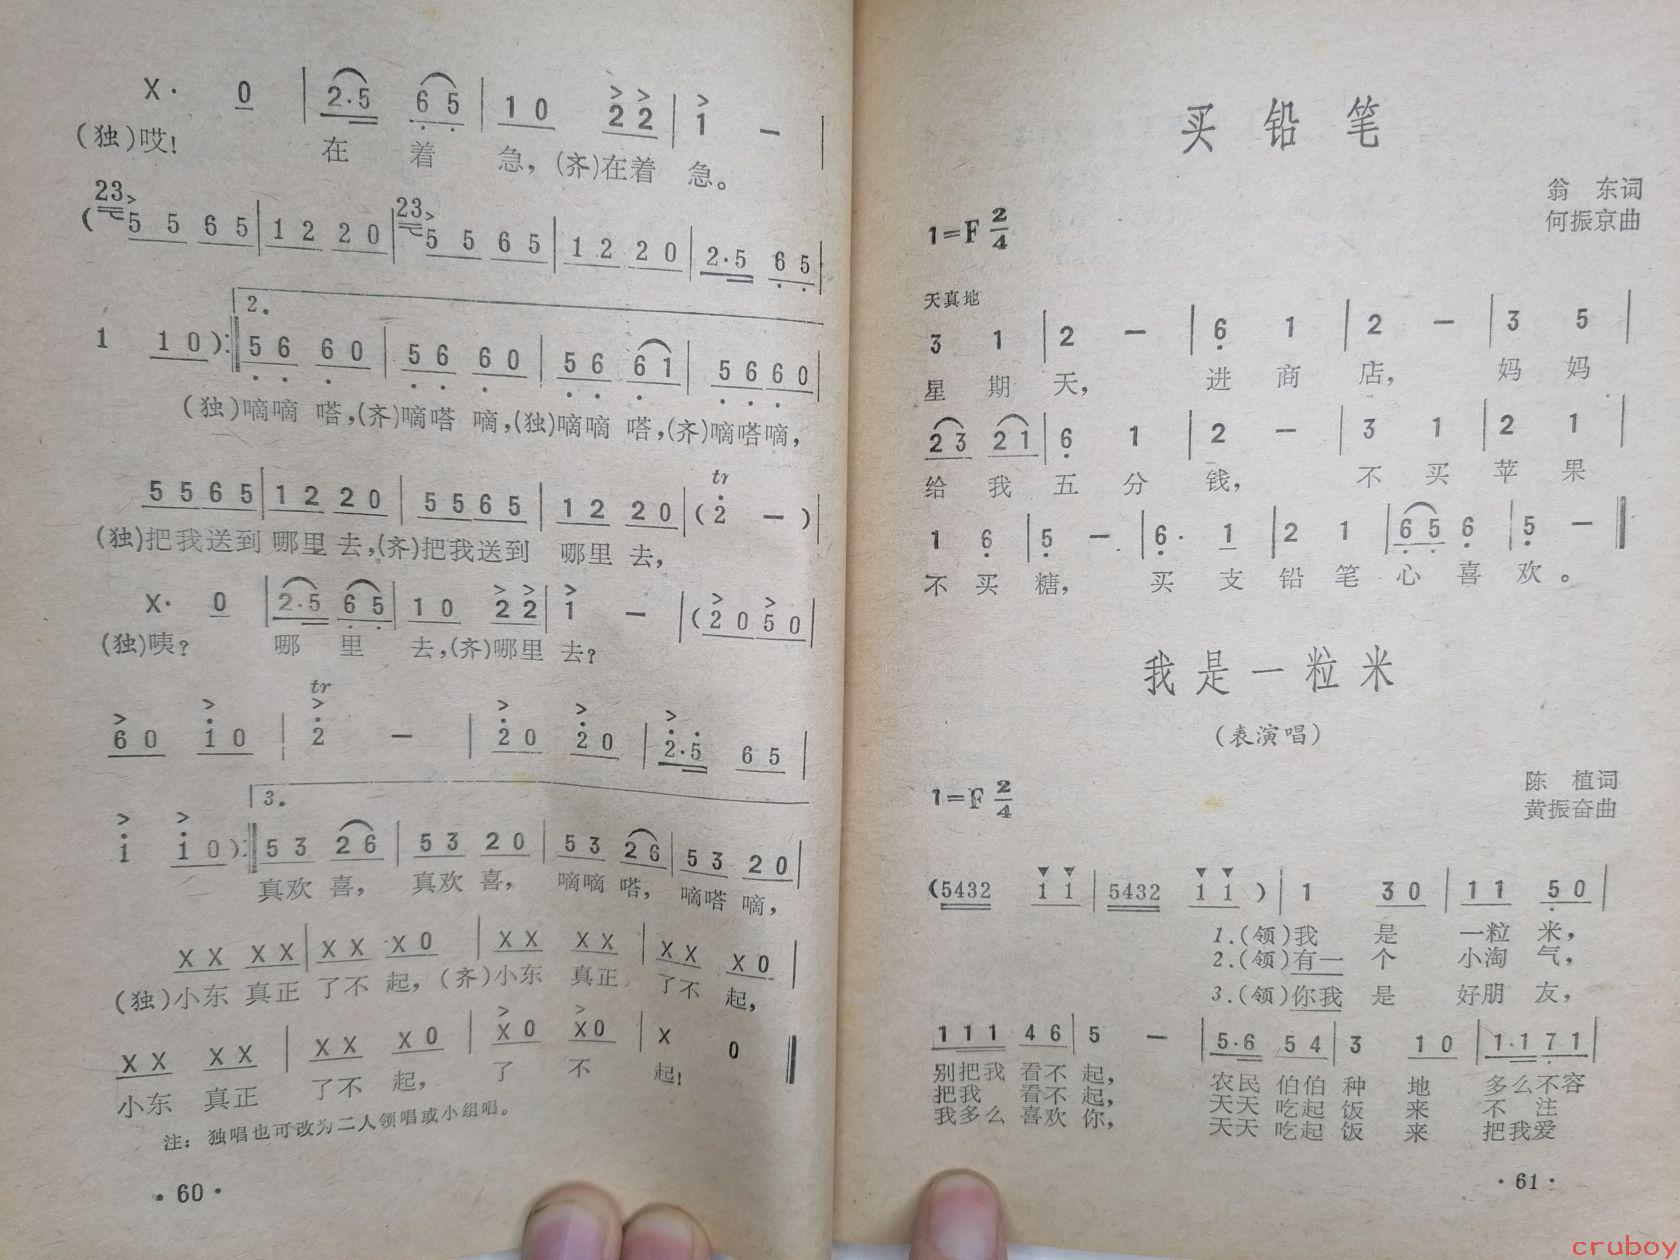 X· 0 | 2·5 6 5 | 1 0 2 2 | 1 — |
(独)哎! 在 着 急,(齐)在着 急。
(23 5 5 6 5 | 1 2 2 0 | 23 5 5 6 5 | 1 2 2 0 | 2·5 6 5 |
2.
1 1 0 ):‖ 5 6 6 0 | 5 6 6 0 | 5 6 6 1 | 5 6 6 0 |
(独)嘀嘀 嗒,(齐)嘀嗒 嘀,(独)嘀嘀 嗒,(齐)嘀嗒嘀,
tr
5 5 6 5 | 1 2 2 0 | 5 5 6 5 | 1 2 2 0 | (2 — ) |
(独)把我送到 哪里 去,(齐)把我送到 哪里 去,
X· 0 | 2·5 6 5 | 1 0 2 2 | 1 — | (2 0 5 0 |
(独)咦? 哪 里 去,(齐)哪里 去?
tr
6 0 1 0 | 2 — | 2 0 2 0 | 2·5 6 5 |
3.
1 1 0 ):‖ 5 3 2 6 | 5 3 2 0 | 5 3 2 6 | 5 3 2 0 |
真欢 喜, 真欢 喜, 嘀嘀 嗒, 嘀嗒 嘀,
X X X X | X X X 0 | X X X X | X X X 0 |
(独)小东 真正 了不 起,(齐)小东 真正 了不 起,
X X X X | X X X 0 | X 0 X 0 | X 0 ‖
小东 真正 了不 起, 了 不 起!
注: 独唱也可改为二人领唱或小组唱。
·60·
买铅笔
翁 东词
何振京曲
1=F 2/4
天真地
3 1 | 2 — | 6 1 | 2 — | 3 5 |
星 期 天, 进 商 店, 妈 妈
2 3 2 1 | 6 1 | 2 — | 3 1 | 2 1 |
给 我 五 分 钱, 不 买 苹 果
1 6 | 5 — | 6· 1 | 2 1 | 6 5 6 | 5 — ‖
不 买 糖, 买 支 铅 笔 心 喜 欢。
我是一粒米
(表演唱)
陈 植词
黄振奋曲
1=F 2/4
(5432 1 1 | 5432 1 1 ) | 1 3 0 | 1 1 5 0 |
1.(领)我 是 一粒 米,
2.(领)有一 个 小淘 气,
3.(领)你我 是 好朋 友,
1 1 1 4 6 | 5 — | 5·6 5 4 | 3 1 0 | 1·1 7 1 |
别把我 看不 起, 农民 伯伯 种 地 多么不容
把我 看不 起, 天天 吃起 饭 来 不 注
我多么 喜欢 你, 天天 吃起 饭 来 把我爱
·61·
cruboy